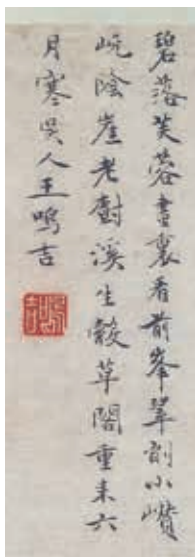 碧落芙蓉畫裏看前峯翠削小巑
岏陰崖老樹溪生縠草閣重來六
月寒吳人王鳴吉